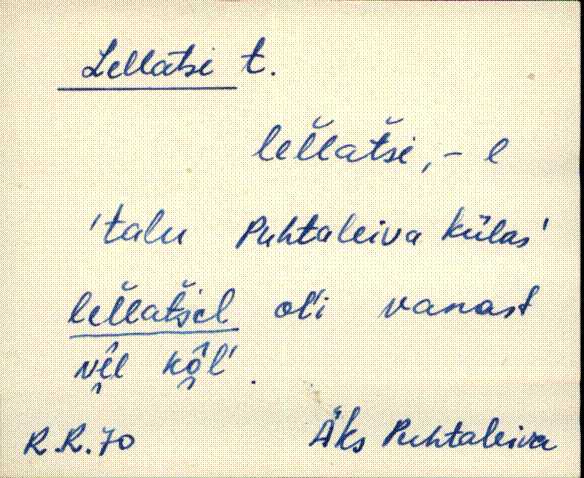 Lellatsi t.
lel̆lat̆si, -l
'talu Puhtaleiva külas'
lel̆lat̆siɛl ol'i vanast
vȩ̑l kǫ̑l'.
R.R.70 Äks Puhtaleiva